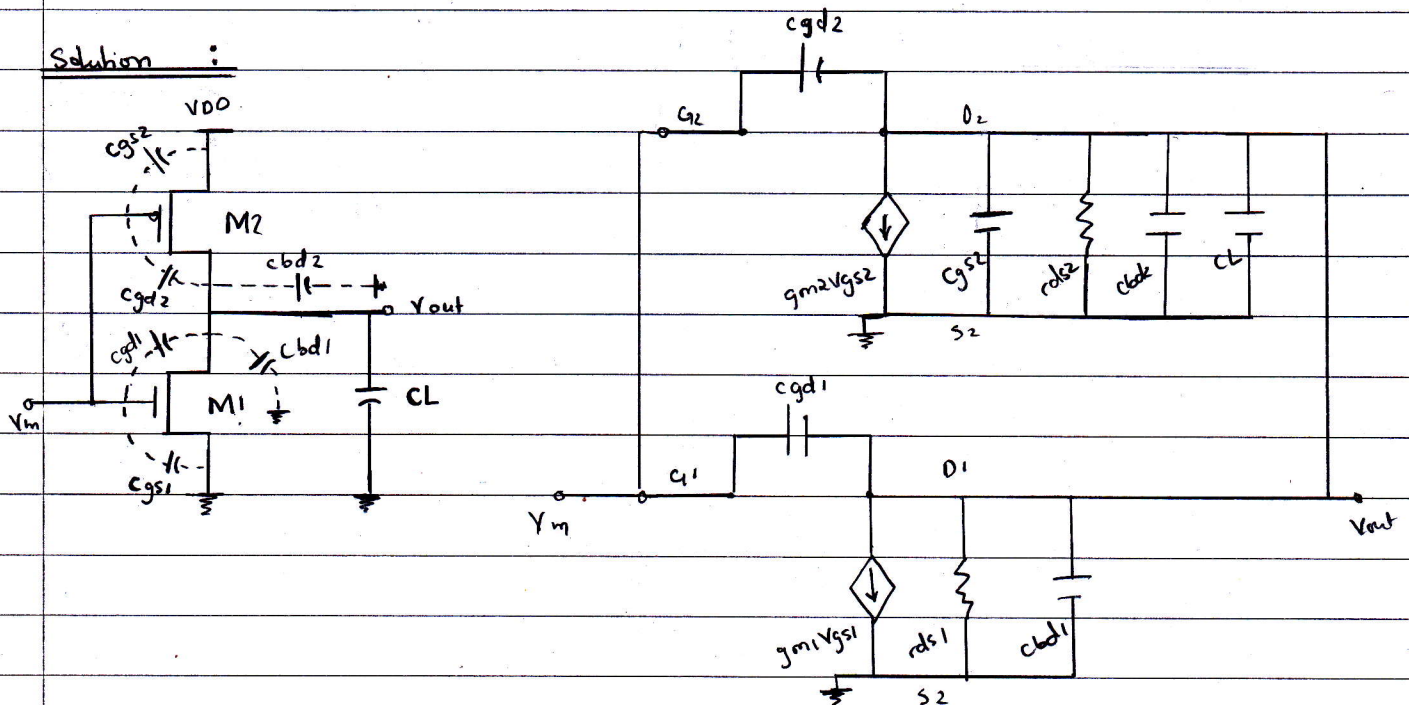 Solution :
VDD
cgs2
M2
cgd2
cbd2
Vout
cgd1
cbd1
M1
Vin
CL
cgs1
cgd2
G2
D2
gm2Vgs2
Cgs2
rds2
CL
S2
cgd1
G1
D1
Vin
Vout
gm1Vgs1
rds1
cbd1
S2